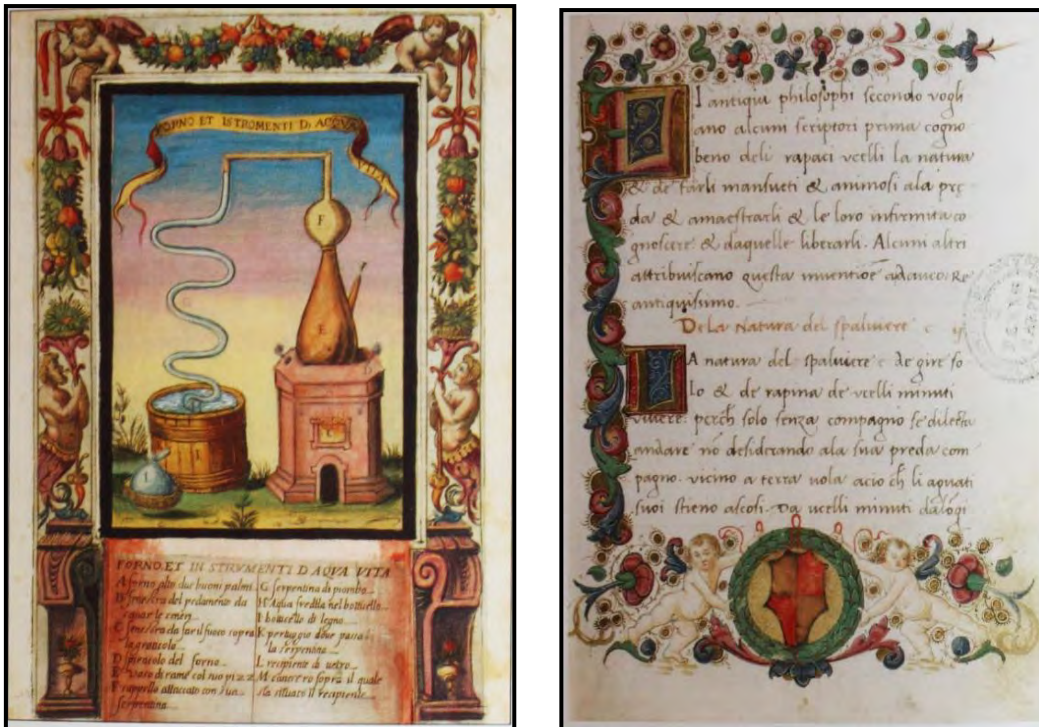 FORNO ET ISTROMENTI DI ACQVA
VITA
F
E
I
I
FORNO, ET IN STRVMENTI D AQVA VITA
A forno alto due buoni palmi
B fenestra del pedamento da
C fenestra da far il fuoco sopra
la graticola
D spiracolo del forno
E Vaso di rame col suo pizzo
F cappello attaccato con sua
serpentina
G serpentina di piombo
H Aqua fredda nel botticello
I botticello di legno
K pertuggio doue passa
la serpentina
L recipiente di uetro
M sopra il quale
sta situato il recipiente
LI antiqui philosophi secondo vogli
ano alcuni scriptori prima cogno
beno deli rapaci vcelli la natura
& de farli mansueti & animosi ala pre
da & amaestrarli & le loro infirmita co
gnoscere & daquelle liberarli. Alcuni altri
attribuiscano questa inuentione Re
antiquissimo.
De La Natura del spaluiere
LA natura del spaluiere e de gire so
lo & de rapina de vcelli minuti
viuere. perch solo senza compagno se dilecta
andare nō desiderando ala sua preda com
pagno. vicino a terra uola acio ch li aguati
suoi stieno ascosi. Da ucelli minuti dalogi